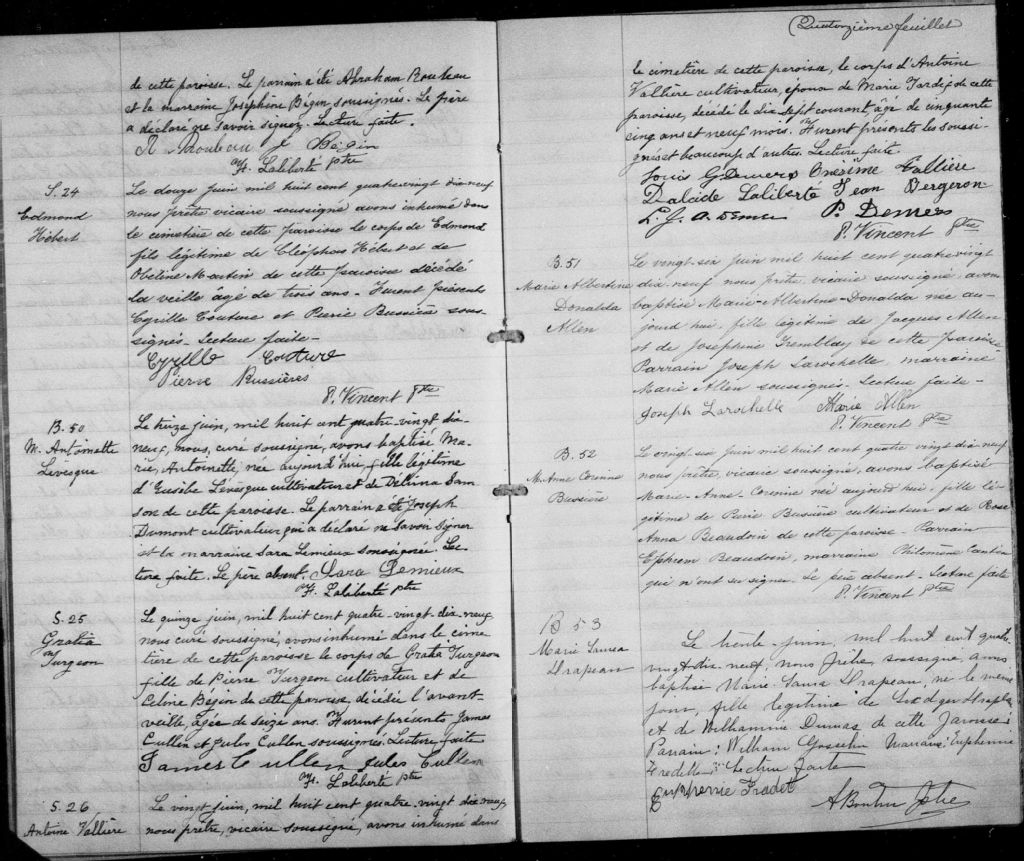 de cette paroisse. Le parrain a été Abraham Rouleau
et la marraine Joséphine Bégin soussignés. Le père
a déclaré ne savoir signer. Lecture faite.
A Rouleau J Bégin
H. Laliberté ptre
S. 24
Edmond
Hébert
Le douze juin mil huit cent quatre-vingt dix neuf
nous prêtre vicaire soussigné avons inhumé dans
le cimetière de cette paroisse le corps de Edmond
fils légitime de Cléophas Hébert et de
Obéline Martin de cette paroisse décédé
la veille âgé de trois ans - Furent présents
Cyrille Couture et Pierre Bussières sous-
signés - Lecture faite -
Cyrille Couture
Pierre Bussières
P. Vincent Ptre
B. 50
M. Antoinette
Lévesque
Le treize juin, mil huit cent quatre-vingt dix-
neuf, nous, curé soussigné, avons baptisé Ma-
rie, Antoinette, née aujourd'hui, fille légitime
d'Eusèbe Lévesque cultivateur et de Délvina Sam
son de cette paroisse. Le parrain a été Joseph
Dumont cultivateur qui a déclaré ne savoir signer
et la marraine Sara Lemieux soussignée. Lec-
ture faite. Le père absent. Sara Lemieux
H. Laliberté ptre
S. 25
Gratia
Turgeon
Le quinze juin, mil huit cent quatre-vingt-dix-neuf,
nous curé soussigné, avons inhumé dans le cime
tière de cette paroisse le corps de Gratia Turgeon
fille de Pierre Turgeon cultivateur et de
Céline Bégin de cette paroisse, décédée l'avant-
veille, âgée de seize ans. Furent présents James
Cullen et Jules Cullen soussignés. Lecture faite
James Cullen Jules Cullen
H. Laliberté ptre
S. 26
Antoine Vallière
Le vingt juin, mil huit cent quatre-vingt dix neuf,
nous prêtre, vicaire soussigné, avons inhumé dans
Quatorzième feuillet
le cimetière de cette paroisse, le corps d'Antoine
Vallière cultivateur, époux de Marie Tardif de cette
paroisse, décédé le dix sept courant, âgé de cinquante
cinq ans et neuf mois. Furent présents les soussi-
gnés et beaucoup d'autres. Lecture faite
Louis G Demers Onésime Vallière
Dalcide Laliberté Jean Bergeron
L. J. A. Demers P. Demers
P. Vincent Ptre
B. 51
Marie Albertine
Donalda
Allen
Le vingt six juin mil huit cent quatre vingt
dix-neuf nous prêtre, vicaire soussigné, avons
baptisé Marie-Albertine-Donalda née au-
jourd'hui, fille légitime de Jacques Allen
et de Joséphine Tremblay de cette paroisse
Parrain Joseph Larochelle, marraine
Marie Allen soussignés - Lecture faite -
Joseph Larochelle Marie Allen
P. Vincent Ptre
B. 52
M. Anne Corinne
Bussière
Le vingt six juin mil huit cent quatre vingt dix-neuf
nous prêtre, vicaire soussigné, avons baptisé
Marie-Anne-Corinne née aujourd'hui, fille lé-
gitime de Pierre Bussière cultivateur et de Rose
Anna Beaudoin de cette paroisse - Parrain
Ephrem Beaudoin, marraine Philomène Cantin
qui n'ont su signer. Le père absent - Lecture faite
P. Vincent Ptre
B 53
Marie Laura
Drapeau
Le trente juin, mil huit cent quatre
vingt-dix neuf, nous Prêtre soussigné, avons
baptisé Marie Laura Drapeau née le même
jour, fille légitime de Drapeau
et de Wilhamine Dumas de cette Paroisse
Parrain: William Gosselin Marraine: Euphémie
Fradette. Lecture faite
Euphémie Fradet
A Boutin Ptre